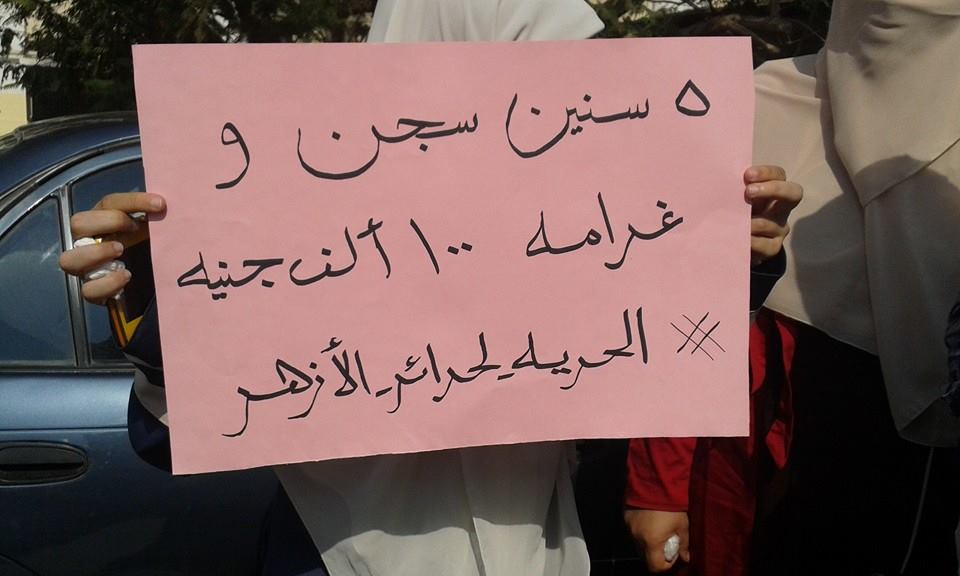 ٥ سنين سجن و
غرامه ١٠٠ ألف جنيه
# الحريه_لحرائر_الأزهر